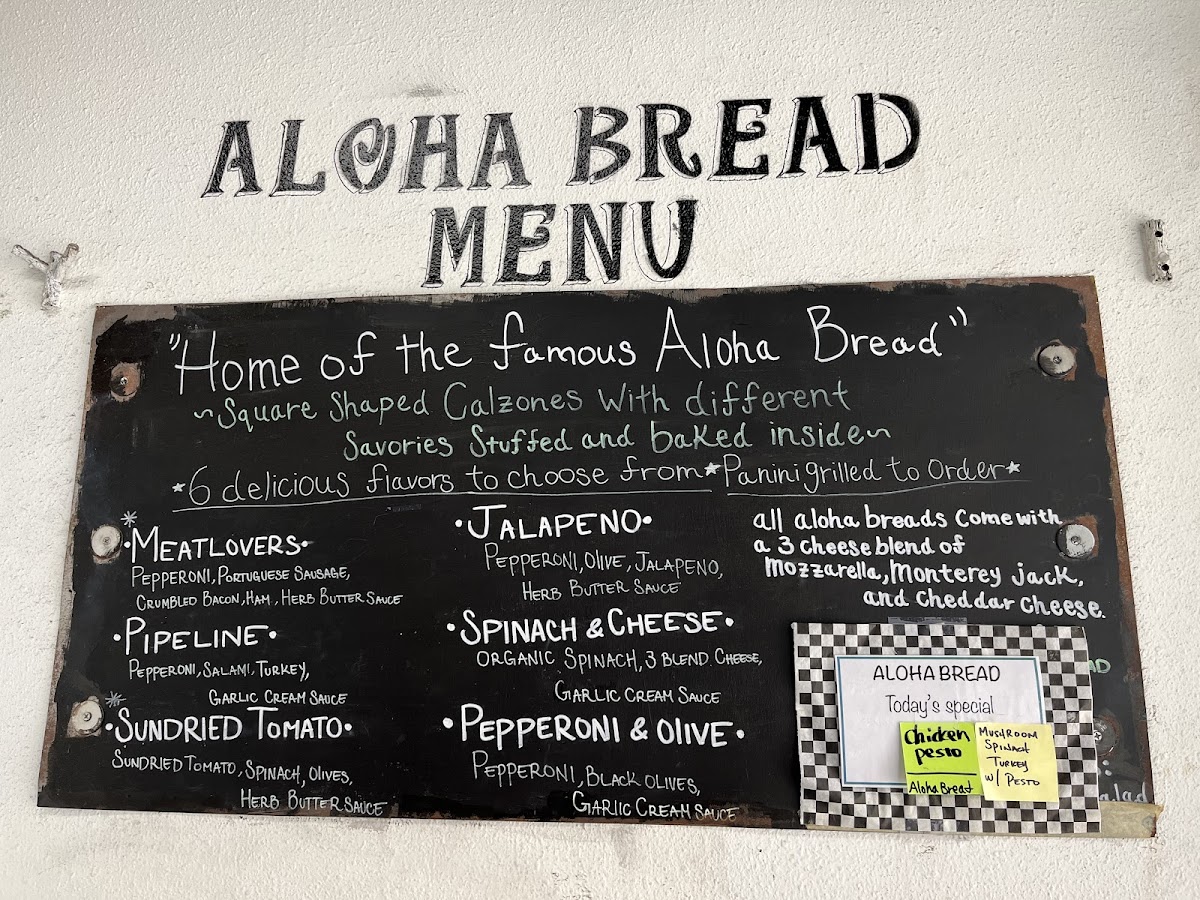 ALOHA BREAD
MENU
"Home of the famous Aloha Bread"
~Square Shaped Calzones With different
Savories Stuffed and baked inside~
*6 delicious flavors to choose from*Panini grilled to Order*
*
•MEATLOVERS•
PEPPERONI, PORTUGUESE SAUSAGE,
CRUMBLED BACON, HAM, HERB BUTTER SAUCE
•PIPELINE•
PEPPERONI, SALAMI, TURKEY,
GARLIC CREAM SAUCE
*
•SUNDRIED TOMATO•
SUNDRIED TOMATO, SPINACH, OLIVES,
HERB BUTTER SAUCE
•JALAPENO•
PEPPERONI, OLIVE, JALAPENO,
HERB BUTTER SAUCE
•SPINACH & CHEESE•
ORGANIC SPINACH, 3 BLEND CHEESE,
GARLIC CREAM SAUCE
•PEPPERONI & OLIVE•
PEPPERONI, BLACK OLIVES,
GARLIC CREAM SAUCE
all aloha breads come with
a 3 cheese blend of
Mozzarella, Monterey jack,
and cheddar cheese.
ALOHA BREAD
Today's special
Chicken
pesto
Aloha Bread
MUSHROOM
SPINACH
TURKEY
W/ PESTO